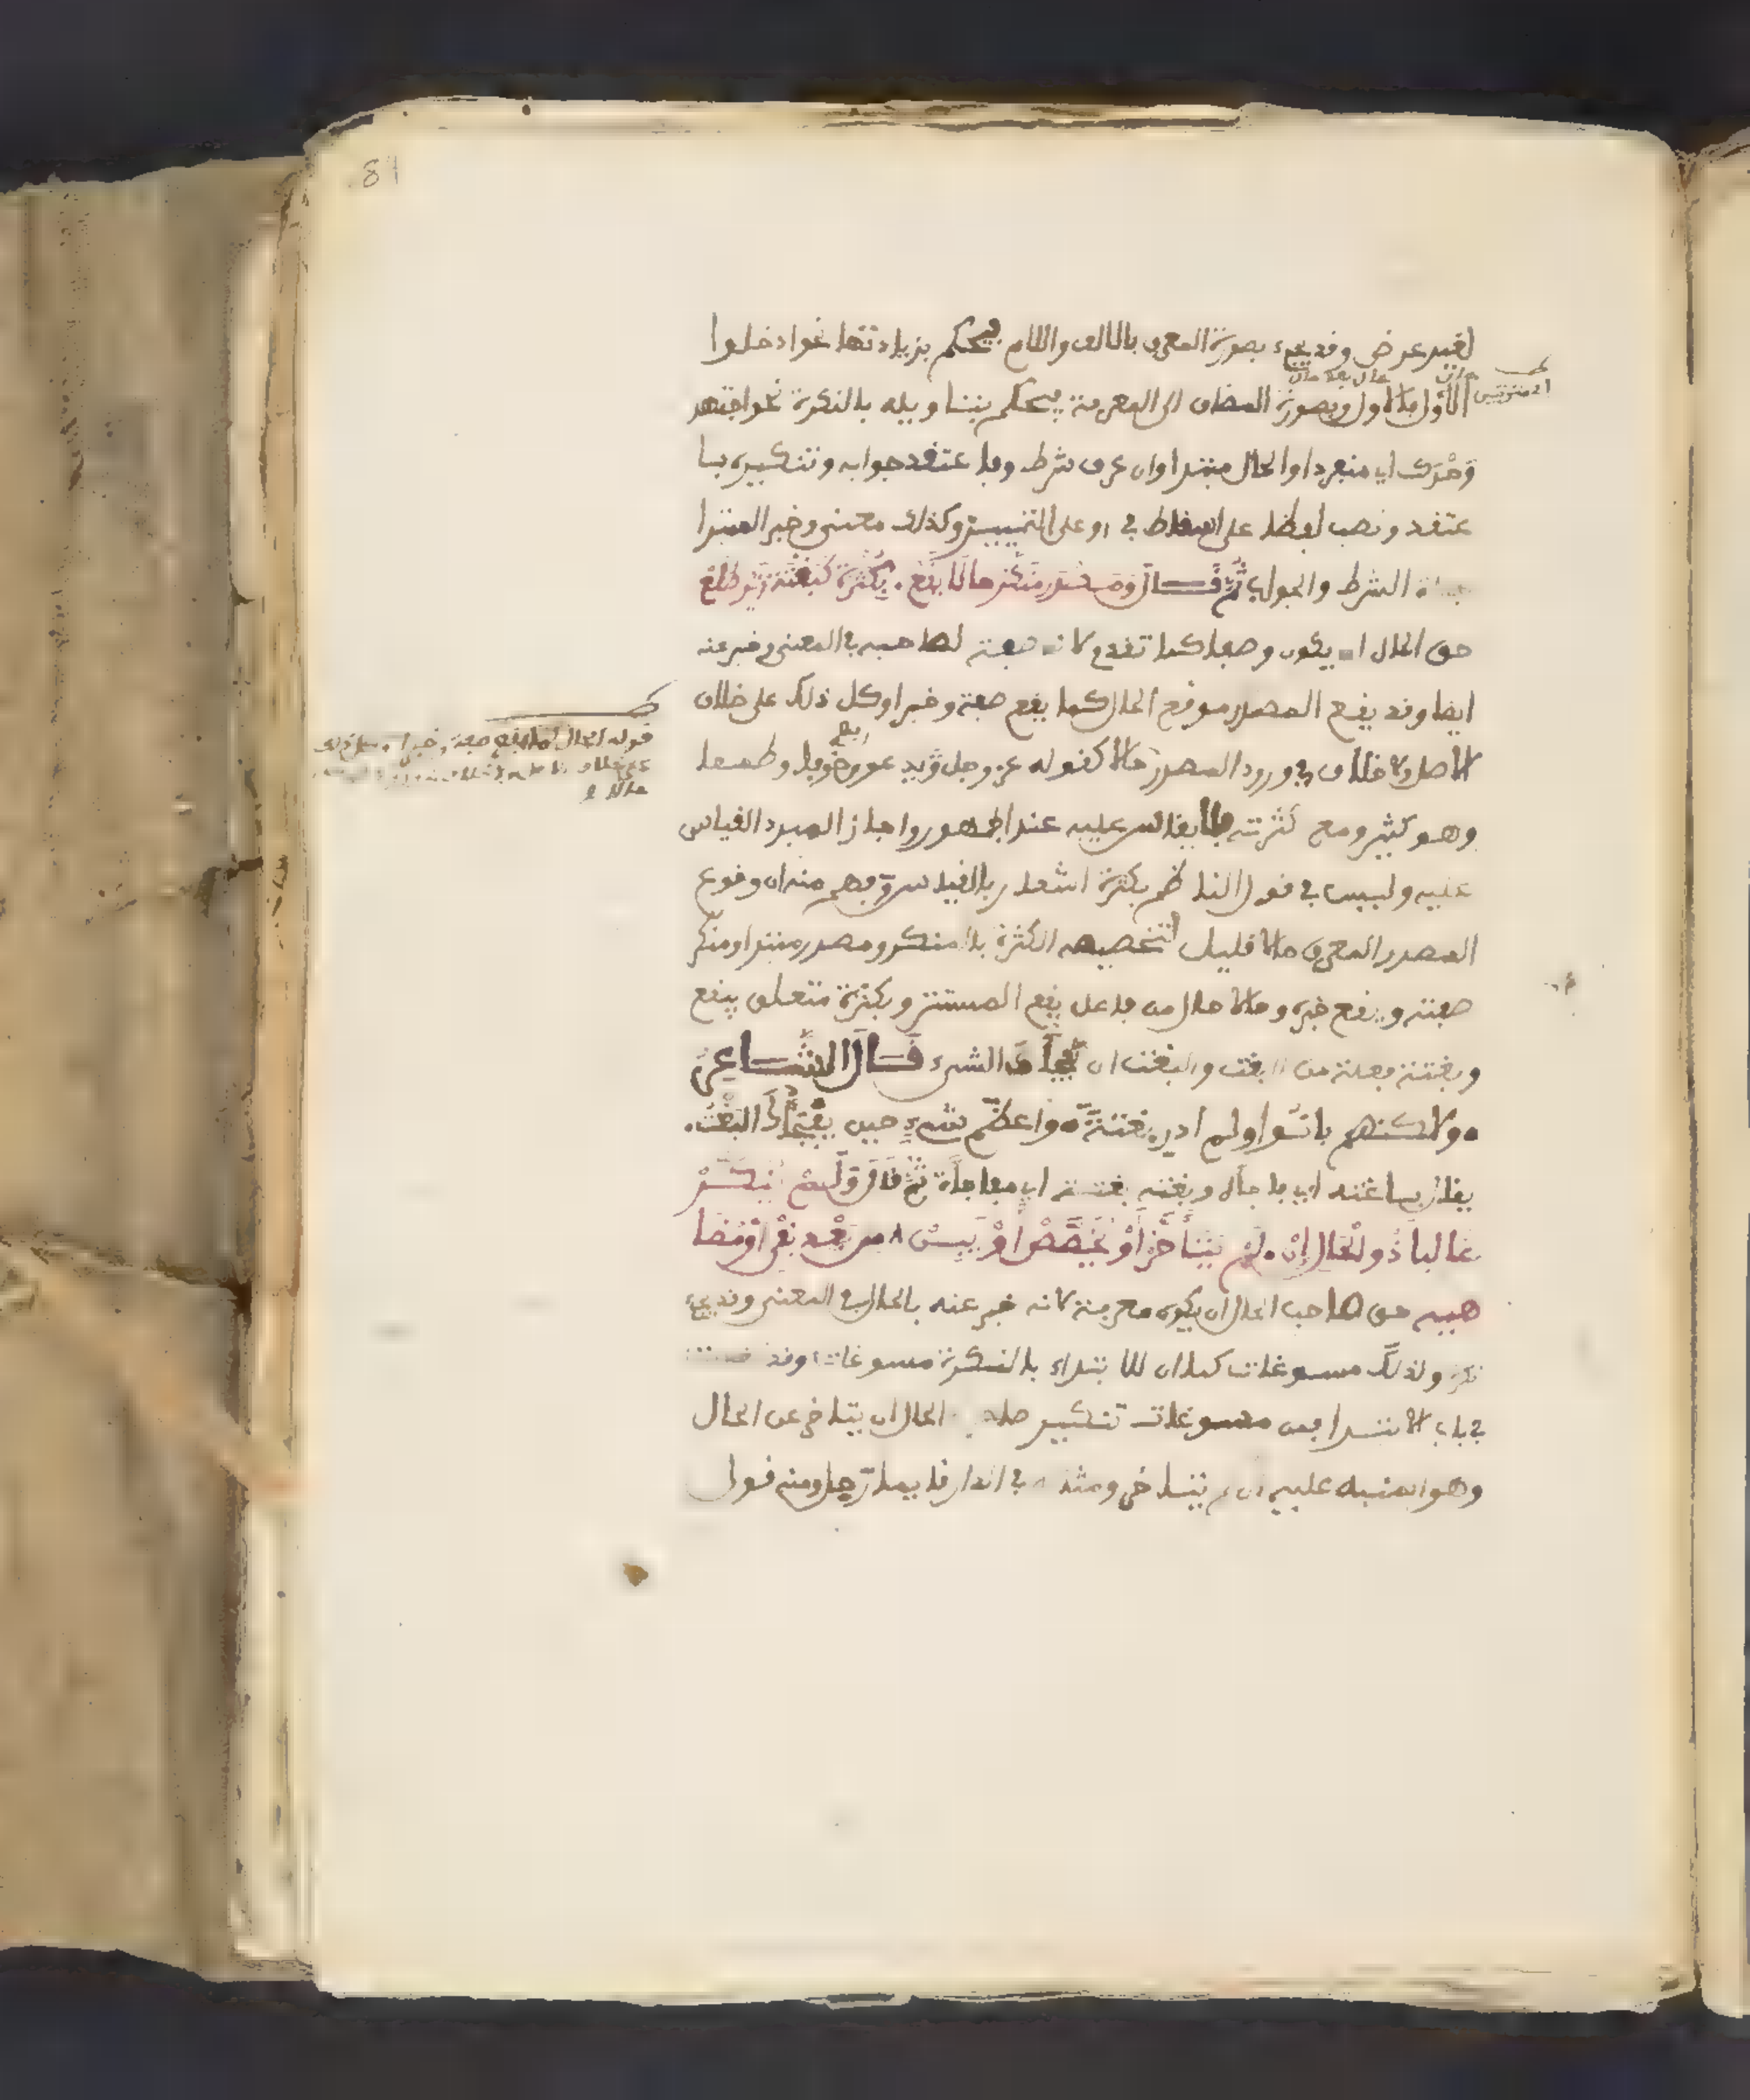 لغير عرض وقد يجيء بصورة المعرف بالالف واللام فيحكم بزيادتها نحو ادخلوا
الأول فالاول وبصورة المضاف الى المعرفة فيحكم بتاويله بالنكرة نحو اجتهد
وَحْدَك اي منفردا والحال مبتدا وان عرف شرط وفاعتقد جوابه وتنكيره با
عتقد ونصب لفظا على اسقاط في او على التمييز وكذلك معنى وخبر المبتدا
الشرط والجواب ثُمَّ قَــالَ وَمَصْدَر مُنَكَّر حالًا يَقَعْ . بِكَثْرَة كَبَغْتَة زَيْد طَلَعْ
حق الحال ان يكون وصفا كما تقدم لانه صفة لصاحبه في المعنى وخبر عنه
ايضا وقد يقع المصدر موقع الحال كما يقع صفة وخبرا وكل ذلك على خلاف
الاصل ولا خلاف في ورود المصدر حالا كقوله عز وجل يريكم البرق خوفا وطمعا
وهو كثير ومع كثرته فلا يقاس عليه عند الجمهور واجاز المبرد القياس
عليه وليس في قول الناظم بكثرة اشعار بالقياس وفهم منه ان وقوع
المصدر المعرف حالا قليل لتخصيصه الكثرة بالمنكر ومصدر مبتدا ومنكّر
صفته ويقع خبره وحالا حال من فاعل يقع المستتر وبكثرة متعلق بيقع
وبغتة فعلة من البغت والبغت ان يفجأك الشيء قَــالَ الشَّــاعِرُ
. ولاكنهم بانُوا ولم ادر بغتةً . واعظم شيءٍ حين يفْجَأُكَ البَغْتُ .
يقال باغته اي فاجأه وبغته بغتة اي مفاجأة ثُمَّ قَالَ وَلَمْ يُنَكَّرْ
غالبًا ذُو الْحَالِ إِنْ . لَمْ يَتَأَخَّرْ أَوْ يُخَصَّصْ أَوْ يَبِنْ . من بَعْدِ نَفْي أَوْ مُضَا
هيه حق صاحب الحال ان يكون معرفة لانه خبر عنه بالحال في المعنى وقد يجيء
نكرة ولذلك مسوغات كما ان للابتداء بالنكرة مسوغات وقد
في باب الابتدا فمن مسوغات تنكير صاحب الحال ان يتاخر عن الحال
وهو المنبه عليه ان لم يتاخر ومثاله في الدار قايما رجل ومنه قول
81